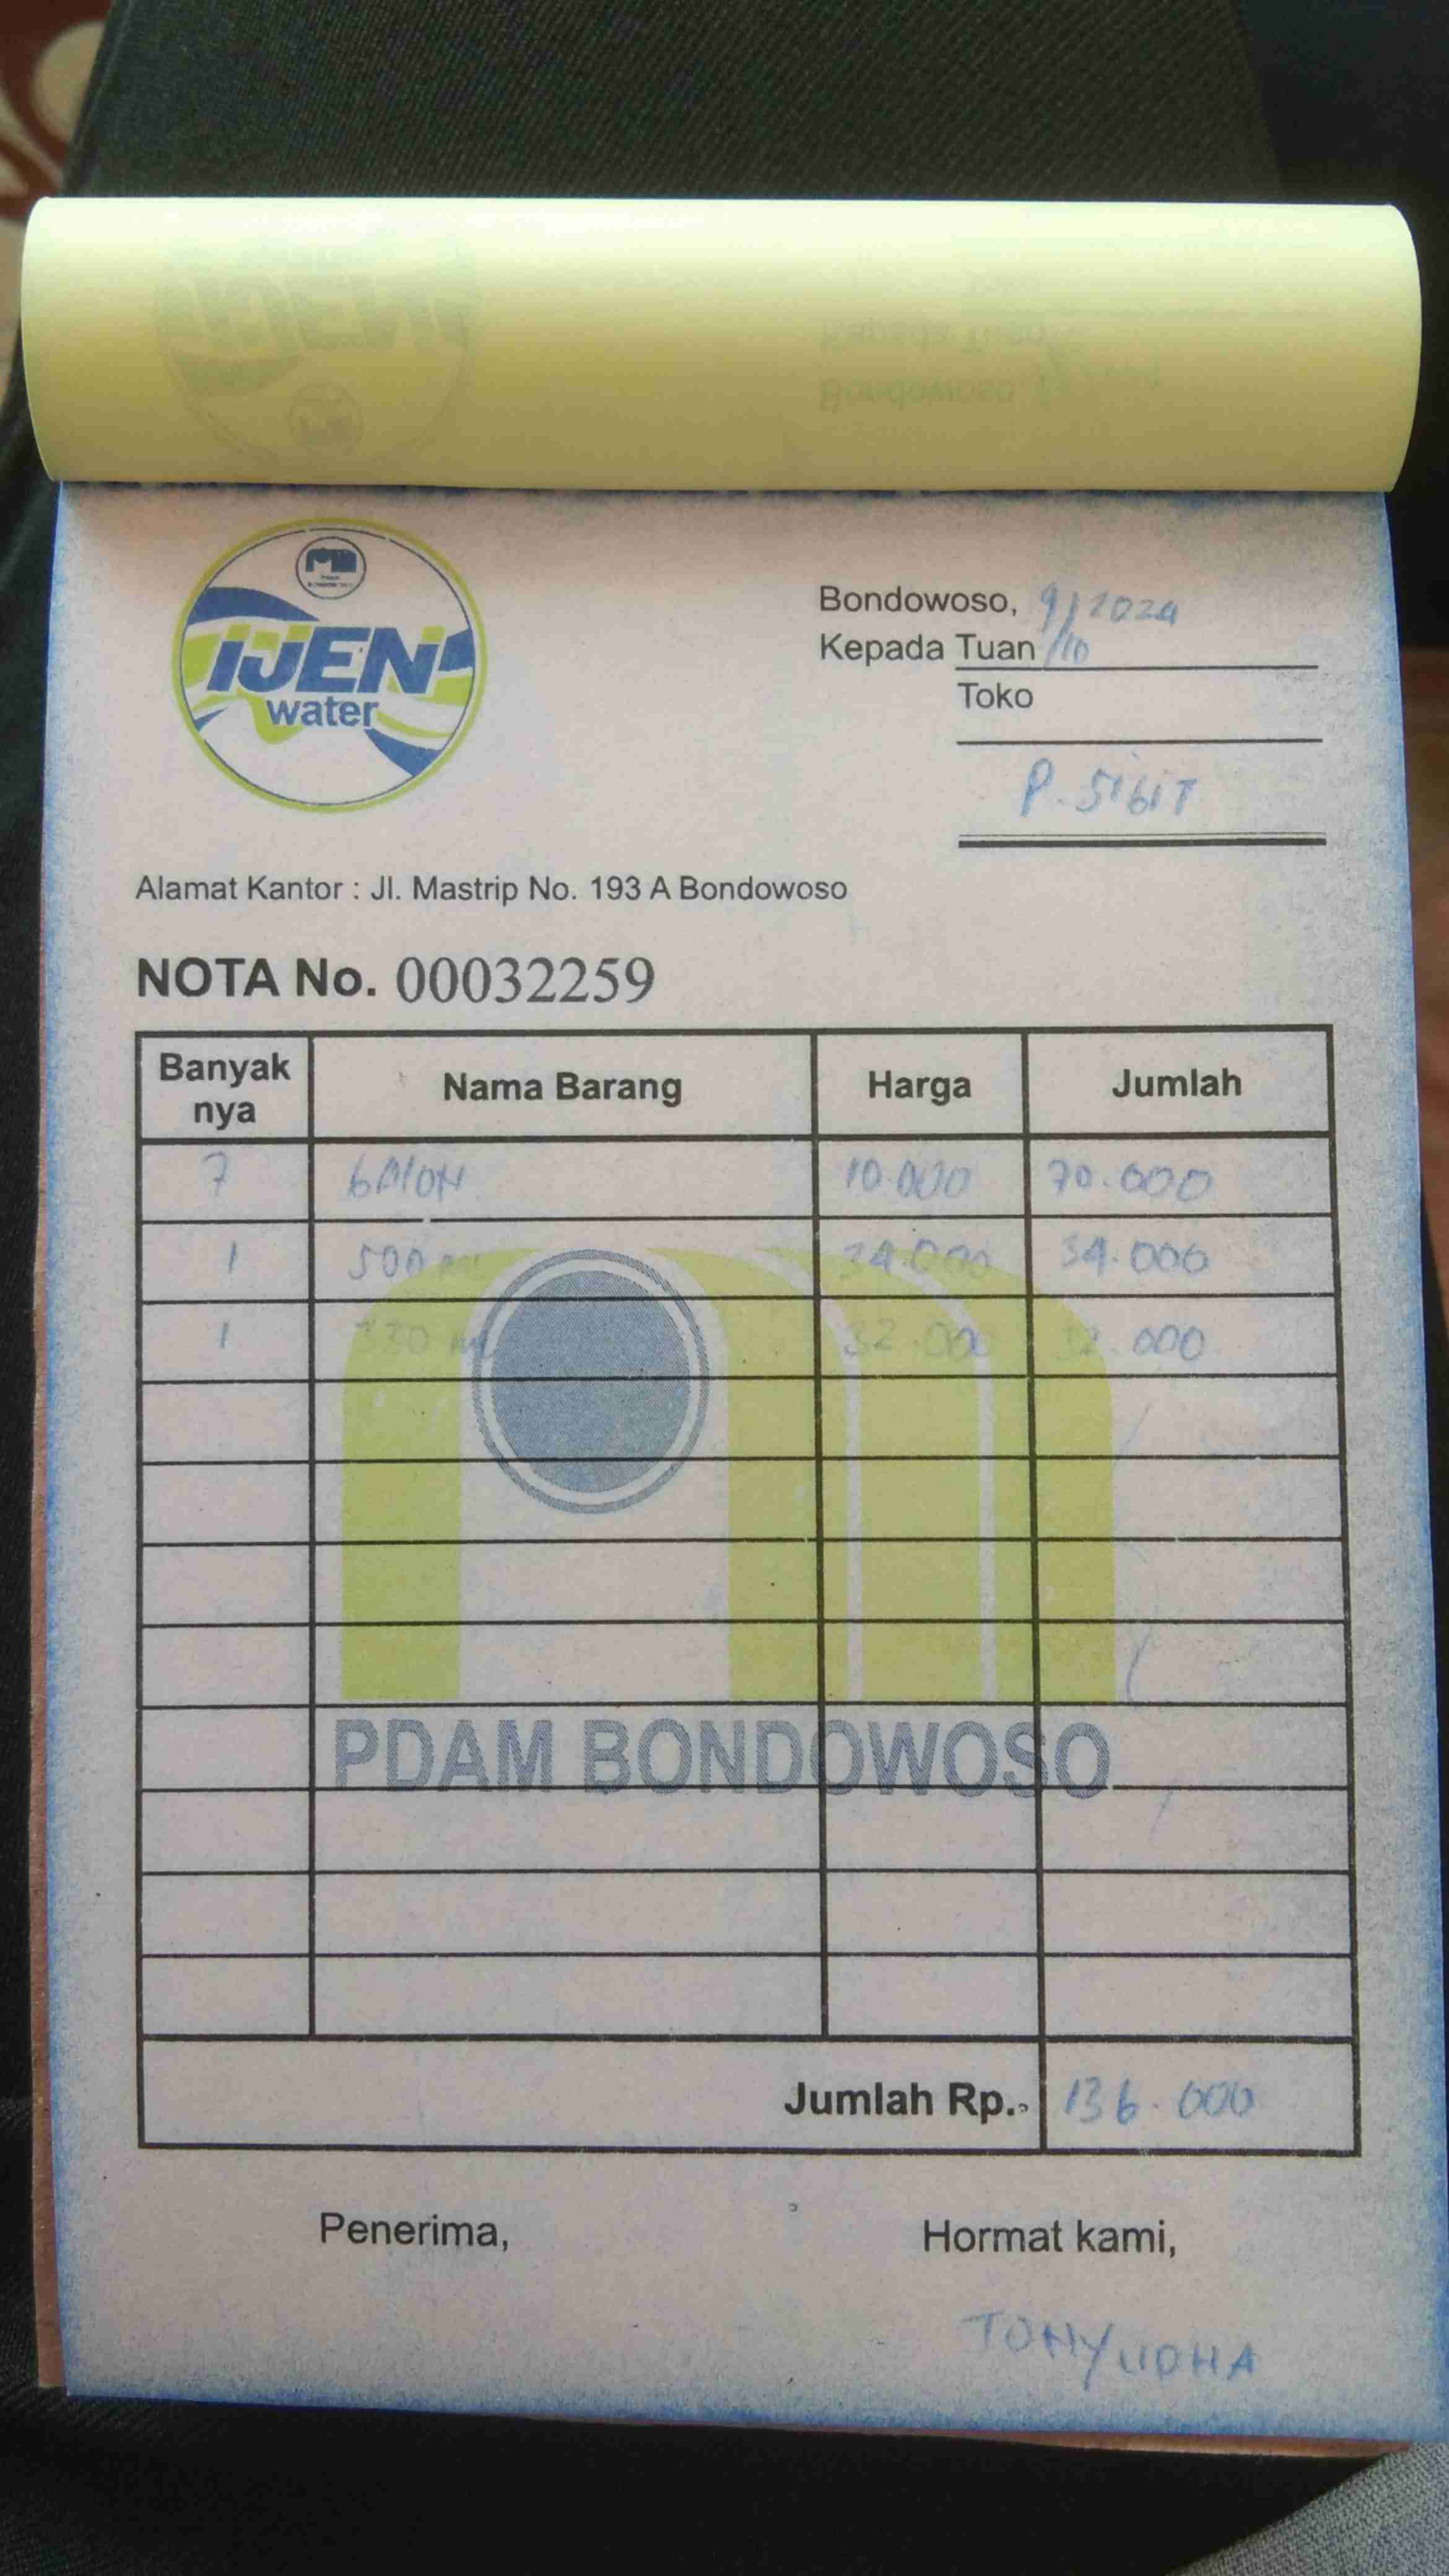 IJEN
water
Bondowoso, 9/10 2024
Kepada Tuan
Toko
P. SIGIT
Alamat Kantor : Jl. Mastrip No. 193 A Bondowoso
NOTA No. 00032259
Banyak nya Nama Barang Harga Jumlah
7 GALON 10.000 70.000
1 500 ML 34.000 34.000
1 330 ML 32.000 32.000
PDAM BONDOWOSO
Jumlah Rp. 136.000
Penerima, Hormat kami,
TONY